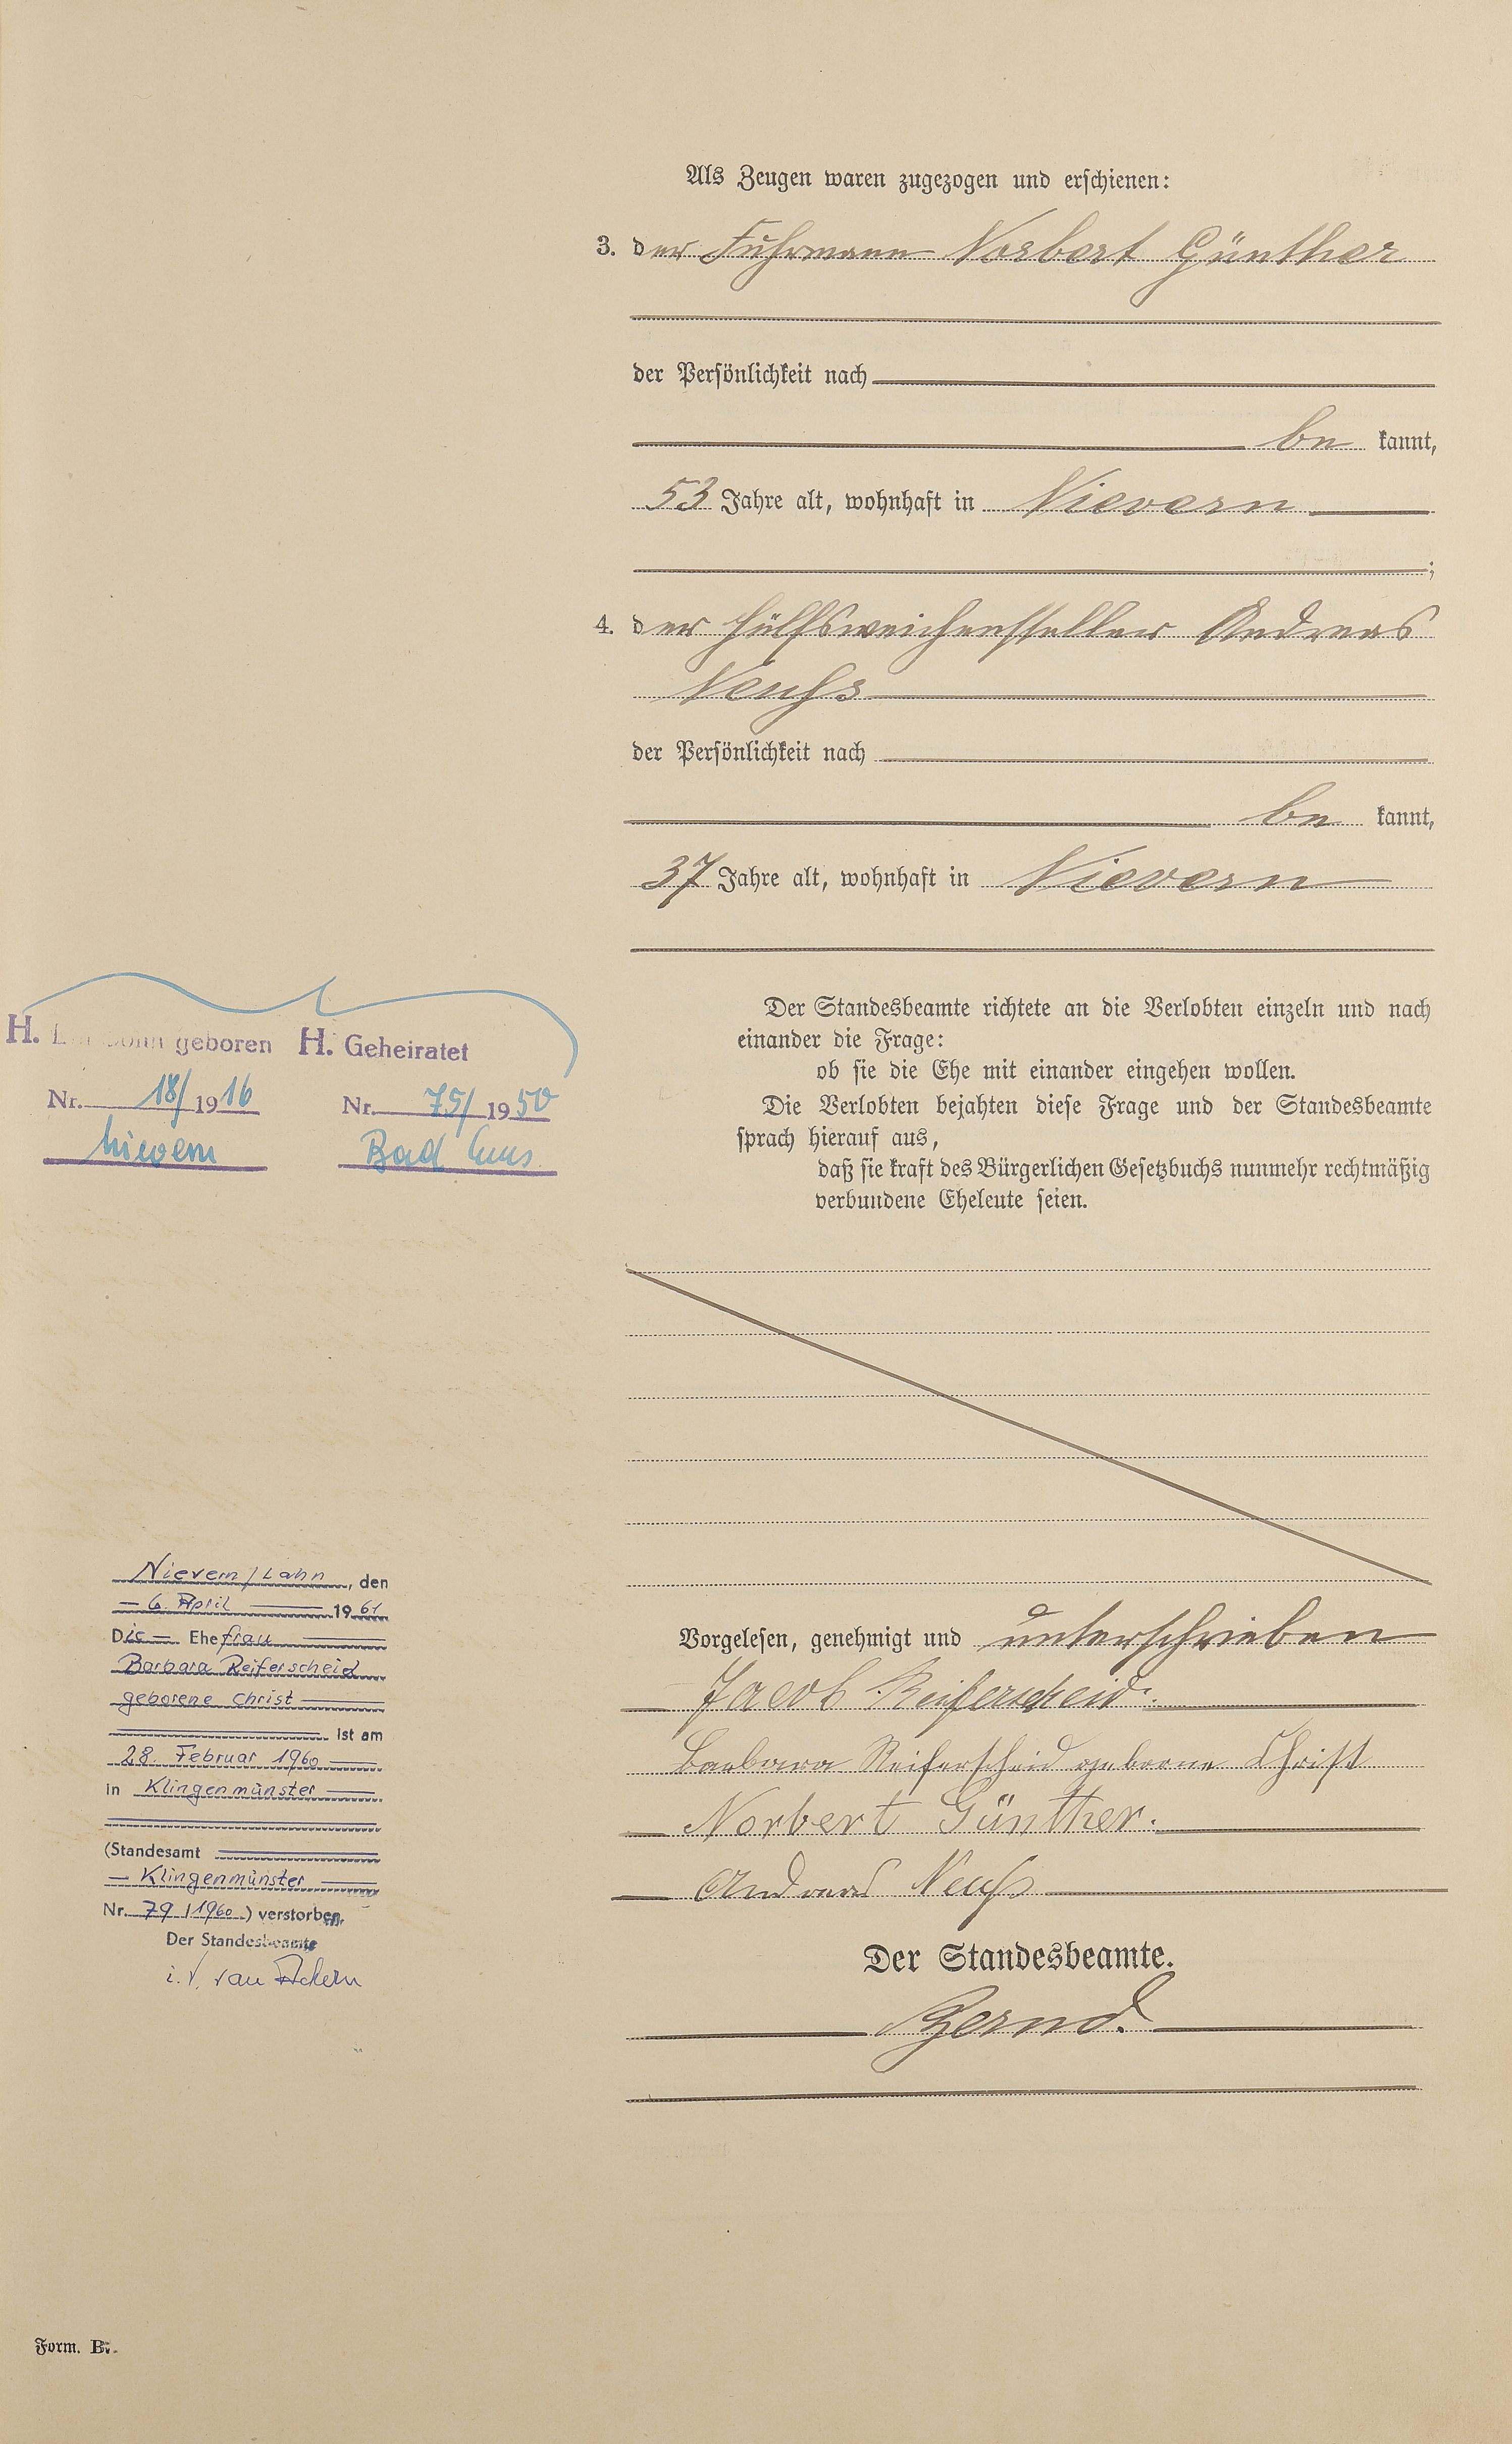 Als Zeugen waren zugezogen und erschienen:
3. der Fuhrmann Norbert Günther
der Persönlichkeit nach
be kannt,
53 Jahre alt, wohnhaft in Nievern
;
4. der Hülfsweichensteller Andreas
Neuhs
der Persönlichkeit nach
be kannt,
37 Jahre alt, wohnhaft in Nievern
Der Standesbeamte richtete an die Verlobten einzeln und nach
einander die Frage:
ob sie die Ehe mit einander eingehen wollen.
Die Verlobten bejahten diese Frage und der Standesbeamte
sprach hierauf aus,
daß sie kraft des Bürgerlichen Gesetzbuchs nunmehr rechtmäßig
verbundene Eheleute seien.
H. geboren
Nr. 18/1916
Nievern
H. Geheiratet
Nr. 75/1950
Bad Ems
Vorgelesen, genehmigt und unterschrieben
Jacob Reiferscheid.
Barbara Reiferscheid geborne Christ
Norbert Günther.
Andreas Neuhs
Der Standesbeamte.
Bernd.
Nievern/Lahn, den
6. April 1961
Die Ehefrau
Barbara Reiferscheid
geborene Christ
ist am
28. Februar 1960
in Klingenmünster
(Standesamt
Klingenmünster
Nr. 79/1960) verstorben.
Der Standesbeamte
i.V. van
Form. B.